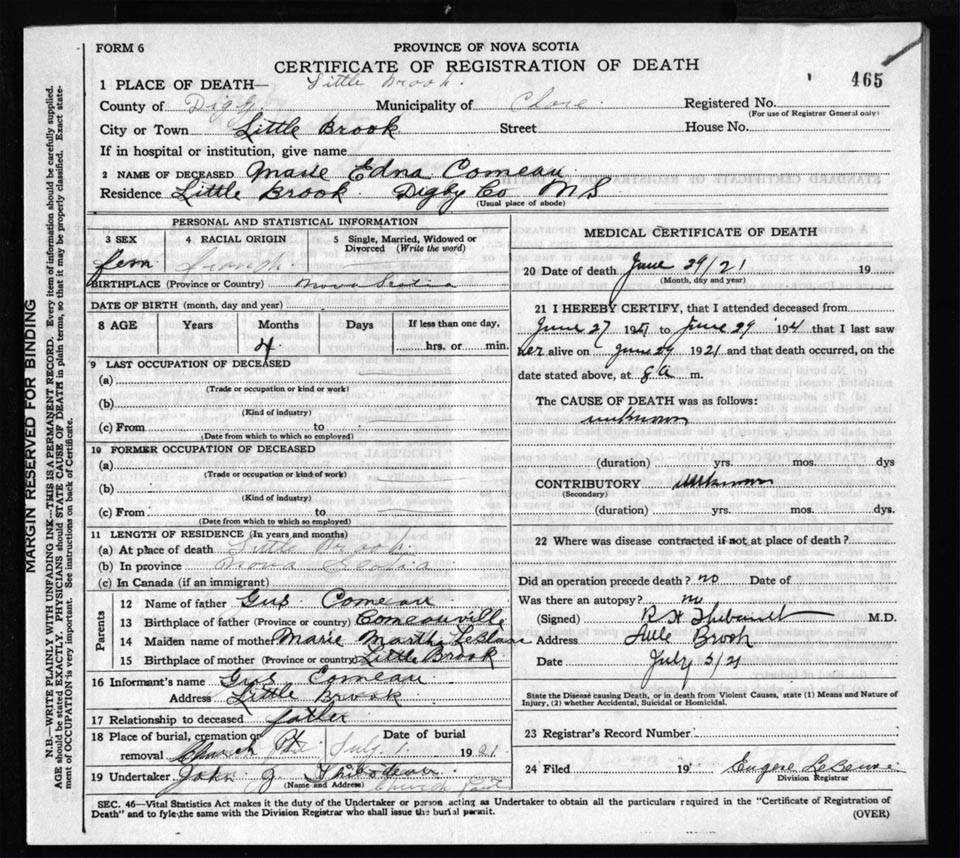 FORM 6
PROVINCE OF NOVA SCOTIA
CERTIFICATE OF REGISTRATION OF DEATH
465
1 PLACE OF DEATH— Little Brook.
County of Digby Municipality of Clare. Registered No.
(For use of Registrar General only)
City or Town Little Brook Street House No.
If in hospital or institution, give name
2 NAME OF DECEASED Marie Edna Comeau
Residence Little Brook Digby Co N S
(Usual place of abode)
PERSONAL AND STATISTICAL INFORMATION
3 SEX 4 RACIAL ORIGIN 5 Single, Married, Widowed or Divorced (Write the word)
fem French
BIRTHPLACE (Province or Country) Nova Scotia
DATE OF BIRTH (month, day and year)
8 AGE Years Months Days If less than one day,
4 hrs. or min.
9 LAST OCCUPATION OF DECEASED
(a)
(Trade or occupation or kind of work)
(b)
(Kind of industry)
(c) From to
(Date from which to which so employed)
10 FORMER OCCUPATION OF DECEASED
(a)
(Trade or occupation or kind of work)
(b)
(Kind of industry)
(c) From to
(Date from which to which so employed)
11 LENGTH OF RESIDENCE (In years and months)
(a) At place of death Little Brook
(b) In province Nova Scotia
(c) In Canada (if an immigrant)
Parents
12 Name of father Gus Comeau
13 Birthplace of father (Province or country) Comeauville
14 Maiden name of mother Marie Martha LeBlanc
15 Birthplace of mother (Province or country) Little Brook
16 Informant's name Gus Comeau
Address Little Brook
17 Relationship to deceased father
18 Place of burial, cremation or removal Church Pt Date of burial July 1 1921
19 Undertaker John J Thibodeau
(Name and Address) Church Point
MEDICAL CERTIFICATE OF DEATH
20 Date of death June 29/21 19
(Month, day and year)
21 I HEREBY CERTIFY, that I attended deceased from
June 27 1921 to June 29 1921 that I last saw
her alive on June 29 1921 and that death occurred, on the
date stated above, at 8 a m.
The CAUSE OF DEATH was as follows:
unknown
(duration) yrs. mos. dys
CONTRIBUTORY unknown
(Secondary)
(duration) yrs. mos. dys.
22 Where was disease contracted if not at place of death?
Did an operation precede death? no Date of
Was there an autopsy? no
(Signed) M.D.
Address Brook
Date July 5/21
State the Disease causing Death, or in death from Violent Causes, state (1) Means and Nature of
Injury, (2) whether Accidental, Suicidal or Homicidal.
23 Registrar's Record Number
24 Filed 19 Eugene
Division Registrar
SEC. 46—Vital Statistics Act makes it the duty of the Undertaker or person acting as Undertaker to obtain all the particulars required in the "Certificate of Registration of
Death" and to fyle the same with the Division Registrar who shall issue the burial permit.
(OVER)
MARGIN RESERVED FOR BINDING
N.B.—WRITE PLAINLY WITH UNFADING INK—THIS IS A PERMANENT RECORD. Every item of information should be carefully supplied.
AGE should be stated EXACTLY. PHYSICIANS should STATE CAUSE OF DEATH in plain terms, so that it may be properly classified. Exact state-
ment of OCCUPATION is very important. See instructions on back of Certificate.